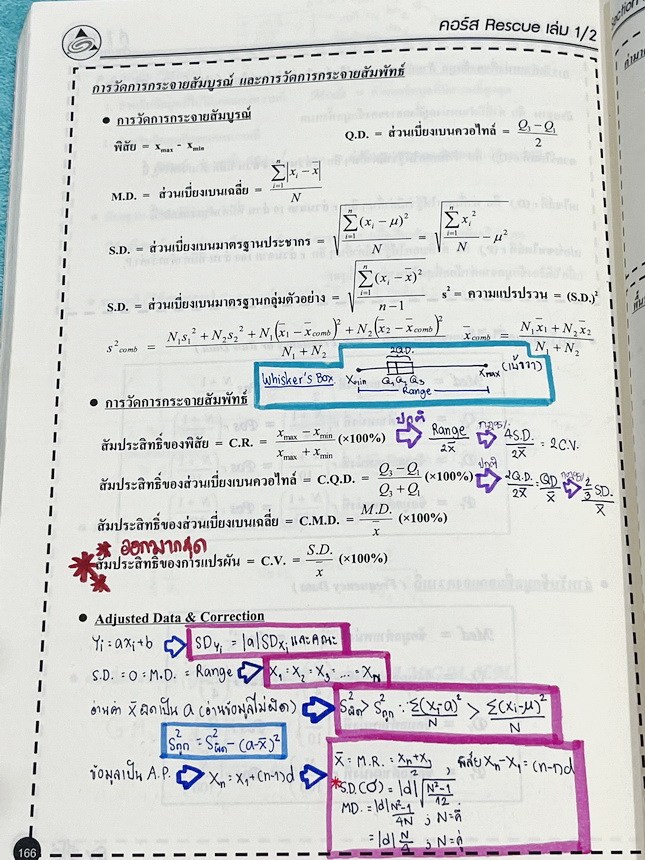 คอร์ส Rescue เล่ม 1/2
การวัดการกระจายสัมบูรณ์ และการวัดการกระจายสัมพัทธ์
• การวัดการกระจายสัมบูรณ์
พิสัย = x_max - x_min
Q.D. = ส่วนเบี่ยงเบนควอไทล์ = (Q₃ − Q₁)/2
M.D. = ส่วนเบี่ยงเบนเฉลี่ย = Σ_{i=1}^{n}|x_i − x̄| / N
S.D. = ส่วนเบี่ยงเบนมาตรฐานประชากร = √(Σ_{i=1}^{n}(x_i − μ)² / N) = √(Σ_{i=1}^{n}x_i² / N − μ²)
S.D. = ส่วนเบี่ยงเบนมาตรฐานกลุ่มตัวอย่าง = √(Σ_{i=1}^{n}(x_i − x̄)² / (n − 1)) s² = ความแปรปรวน = (S.D.)²
s²_comb = (N₁s₁² + N₂s₂² + N₁(x̄₁ − x̄_comb)² + N₂(x̄₂ − x̄_comb)²) / (N₁ + N₂) x̄_comb = (N₁x̄₁ + N₂x̄₂) / (N₁ + N₂)
Whisker's Box
2Q.D.
X_min Q₁ Q₂ Q₃ X_max
Range
• การวัดการกระจายสัมพัทธ์
สัมประสิทธิ์ของพิสัย = C.R. = (x_max − x_min)/(x_max + x_min) (×100%) ปกติ Range/2x̄ 4S.D./2x̄ = 2C.V.
สัมประสิทธิ์ของส่วนเบี่ยงเบนควอไทล์ = C.Q.D. = (Q₃ − Q₁)/(Q₃ + Q₁) (×100%) ปกติ 2Q.D./2x̄ = QD/x̄ 2/3 SD./x̄
สัมประสิทธิ์ของส่วนเบี่ยงเบนเฉลี่ย = C.M.D. = M.D./x̄ (×100%)
ออกมากสุด
สัมประสิทธิ์ของการแปรผัน = C.V. = S.D./x̄ (×100%)
• Adjusted Data & Correction
Yi = axi + b SD_Yi = |a|SD_Xi และคณะ
S.D. = 0 = M.D. = Range X₁ = X₂ = X₃ = .... = X_N
อ่านค่า x̄ ผิดเป็น a (อ่านข้อมูลไม่ผิด) S²ผิด > S²ถูก ∵ Σ(xi-a)²/N > Σ(xi-μ)²/N
S²ถูก = S²ผิด - (a-x̄)²
ข้อมูลเป็น A.P. X_n = X₁+(n-1)d
x̄ = M.R. = (x_n+x₁)/2 , พิสัย X_n - X₁ = (n-1)d
* S.D.(σ) = |d| √((N²-1)/12)
MD. = |d| (N²-1)/4N ; N = คี่
= |d| N/4 ; N = คู่
166